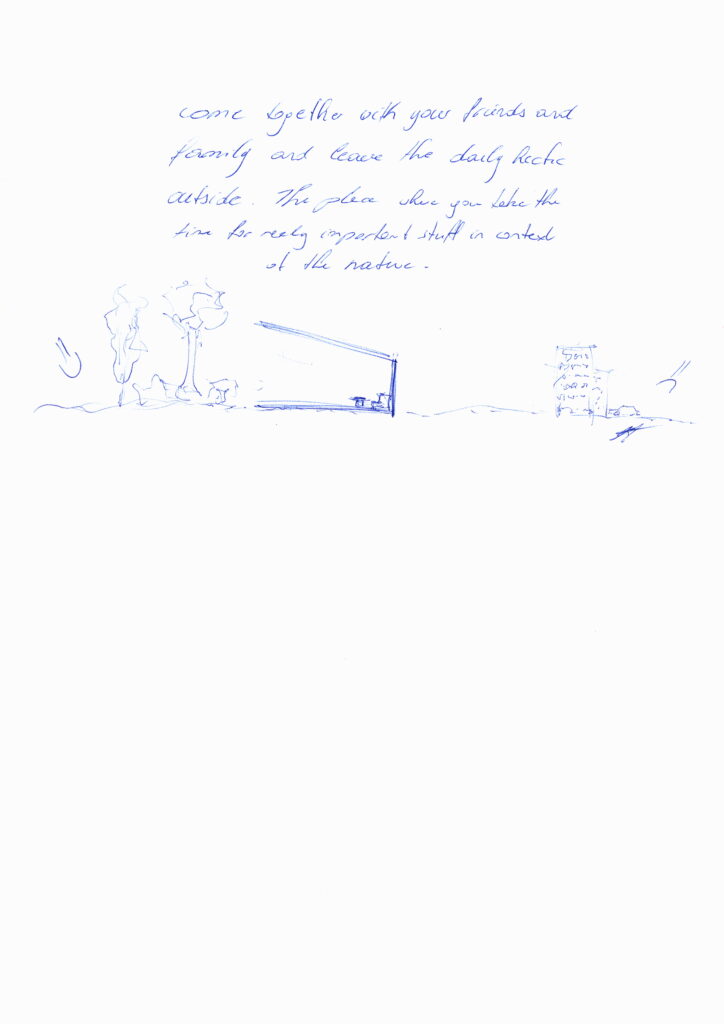 come together with your friends and
family and leave the daily hectic
outside. The place where you take the
time for really important stuff in context
of the nature.